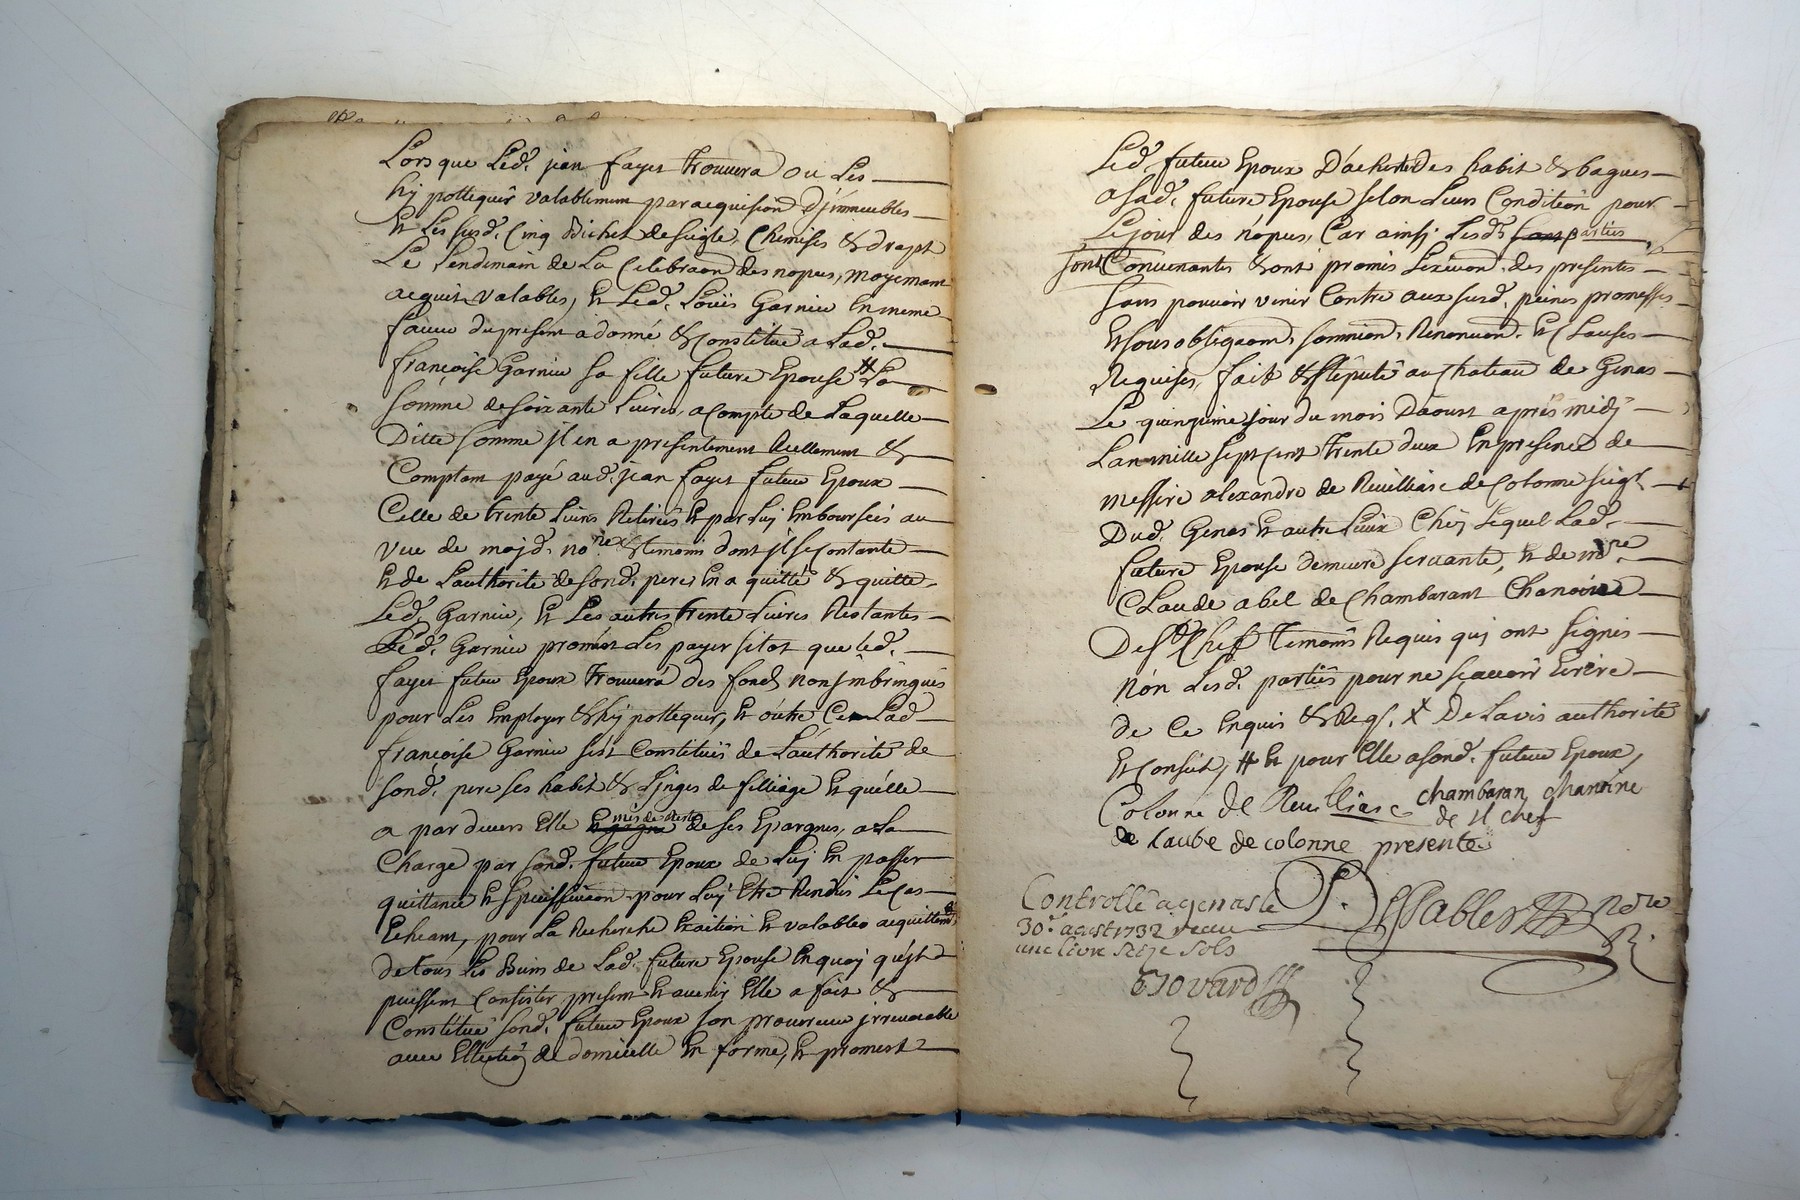 Lorsque Led. jean fayet trouvera ou Les
hÿ pottequer valablement par acquision D'jmmeubles
Et Les susd. Cinq Bichet de seigle, Chemises & drapt
Le Lendemain de La Celebraon des nopces, moyenant
acquit valables, Et Led. Louïs Garnier En meme
faueur du present a donné & Constitué a Lad.
françoise Garnier sa fille future Epouse # La
somme de soixante Liures, a Compte de Laquelle
Ditte somme jl en a presentement Reellement &
Comptant payé aud. jean fayet futeur Epoux
Celle de trente Liures Retirées Et par Luj Emboursées au
veue de mojd. nore & temoins dont jl se Contante
Et de L'authorité de sond. pere, En a quitté & quitte
Led. Garnier, Et Les autres trente Liures Restantes
Led. Garnier promet Les payer sitot que Led.
fayet futeur Epoux trouuera des fonds non jmbringués
pour Les Employer & hÿ pottequer, Et outre Ce Lad
françoise Garnier s'est Constituée de L'authorité de
sond. pere ses habit & Linges de filliage Et qu'elle
a par deuers Elle mis de reste de ses Epargnes, a La
Charge par sond. futeur Epoux de Luj En passer
quittance Et pour Luj Etre Rendus Le Cas
Echeant, pour La Recherche Exaition Et valables acquittemt
de tous Les Biens de Lad. future Epouse En quoj qu'jls
puissent Consister present Et auenir Elle a fait &
Constitué sond. futeur Epoux son procureur jrreuocable
auec Ellection de domicille En forme, Et promest
Led. futeur Epoux D'acheter des habit & bagues
a Sad. future Epouse selon Leurs Condition pour
Le jour des nópces, Car ainsj Lesd. parties
sont Conuenantes & ont promis Lexeuon des presentes
sans pouuoir venir Contre aux susd. peines promesses
Et sous obligaons, somnions, Renonuons Et Clauses
Requises, fait & stiputé au Chateau de Genas
Le quinzieme jour du mois D'aoust aprés midj
Lan mille sept Cent trente deux En presence de
messire alexandre de Reuilliasc de Colonne seigr
Dud. Genas Et autre Lieux Chéz Lequel Lad.
future Epouse demeure seruante, Et de mre
Claude abel de Chambarant Chanoine
De St Cheff temoins Requis quj ont signés
nón Lesd. partiës pour ne scauoir Ecrire
de Ce Enquis & Reqs. X De Lavis authorité
Et Conset, # Et pour Elle a sond. futeur Epoux,
Colonne de Reuilliasc chambaran chanoine
de st chef
de Laube de colonne presente
Controllé a genas le
30e. aoust 1732 receu
une livre seize sols
P. Dessables nore